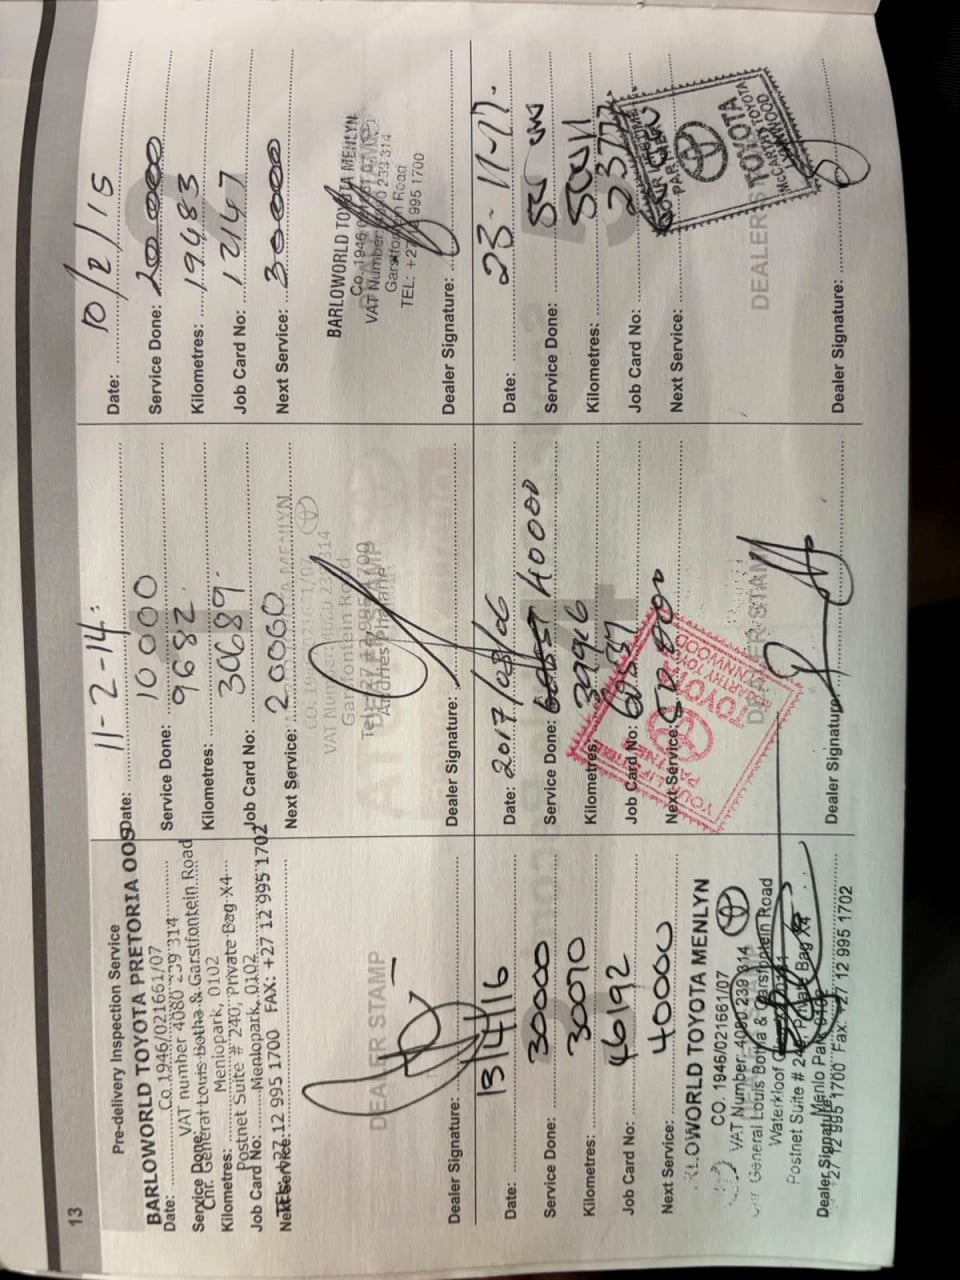 13
Pre-delivery Inspection Service
BARLOWORLD TOYOTA PRETORIA OOS
Date: Co. 1946/021661/07
VAT number 4080 239 314
Service Done:
Cnr. General Louis Botha & Garstfontein Road
Kilometres: Menlopark, 0102
Postnet Suite # 240, Private Bag X4
Job Card No: Menlopark, 0102
TEL: +27 12 995 1700 FAX: +27 12 995 1702
Next Service:
DEALER STAMP
Dealer Signature:
Date: 11-2-14.
Service Done: 10 000
Kilometres: 9682
Job Card No: 30689.
Next Service: 20000
MENLYN
CO. 1946/021661/07
VAT Number 314
Garsfontein Road
DEALER STAMP
Dealer Signature:
Date: 10/2/15
Service Done: 20 000
Kilometres: 19483
Job Card No: 12147
Next Service: 30000
BARLOWORLD TOYOTA MENLYN
Co. 1946
VAT Number 239 314
Garstfontein Road
TEL: +27 995 1700
Dealer Signature:
Date: 13/4/16
Service Done: 30000
Kilometres: 30070
Job Card No: 46192
Next Service: 40000
RLOWORLD TOYOTA MENLYN
CO. 1946/021661/07
VAT Number: 4080 239 314
General Louis Botha & Garsfontein Road
Waterkloof
Postnet Suite # 240, Private Bag X4
Menlo Park
Dealer Signature:
27 12 995 1700 Fax: +27 12 995 1702
Date: 2017/08/06
Service Done: 40000
Kilometres: 39946
Job Card No:
Next Service:
YOUR LIFETIME
PARTNER
TOYOTA
McCARTHY TOYOTA
LYNNWOOD
DEALER STAMP
Dealer Signature:
Date: 23-11-17.
Service Done:
Kilometres:
Job Card No: 2377
Next Service:
YOUR LIFETIME
PARTNER
TOYOTA
McCARTHY TOYOTA
LYNNWOOD
DEALER STAMP
Dealer Signature: